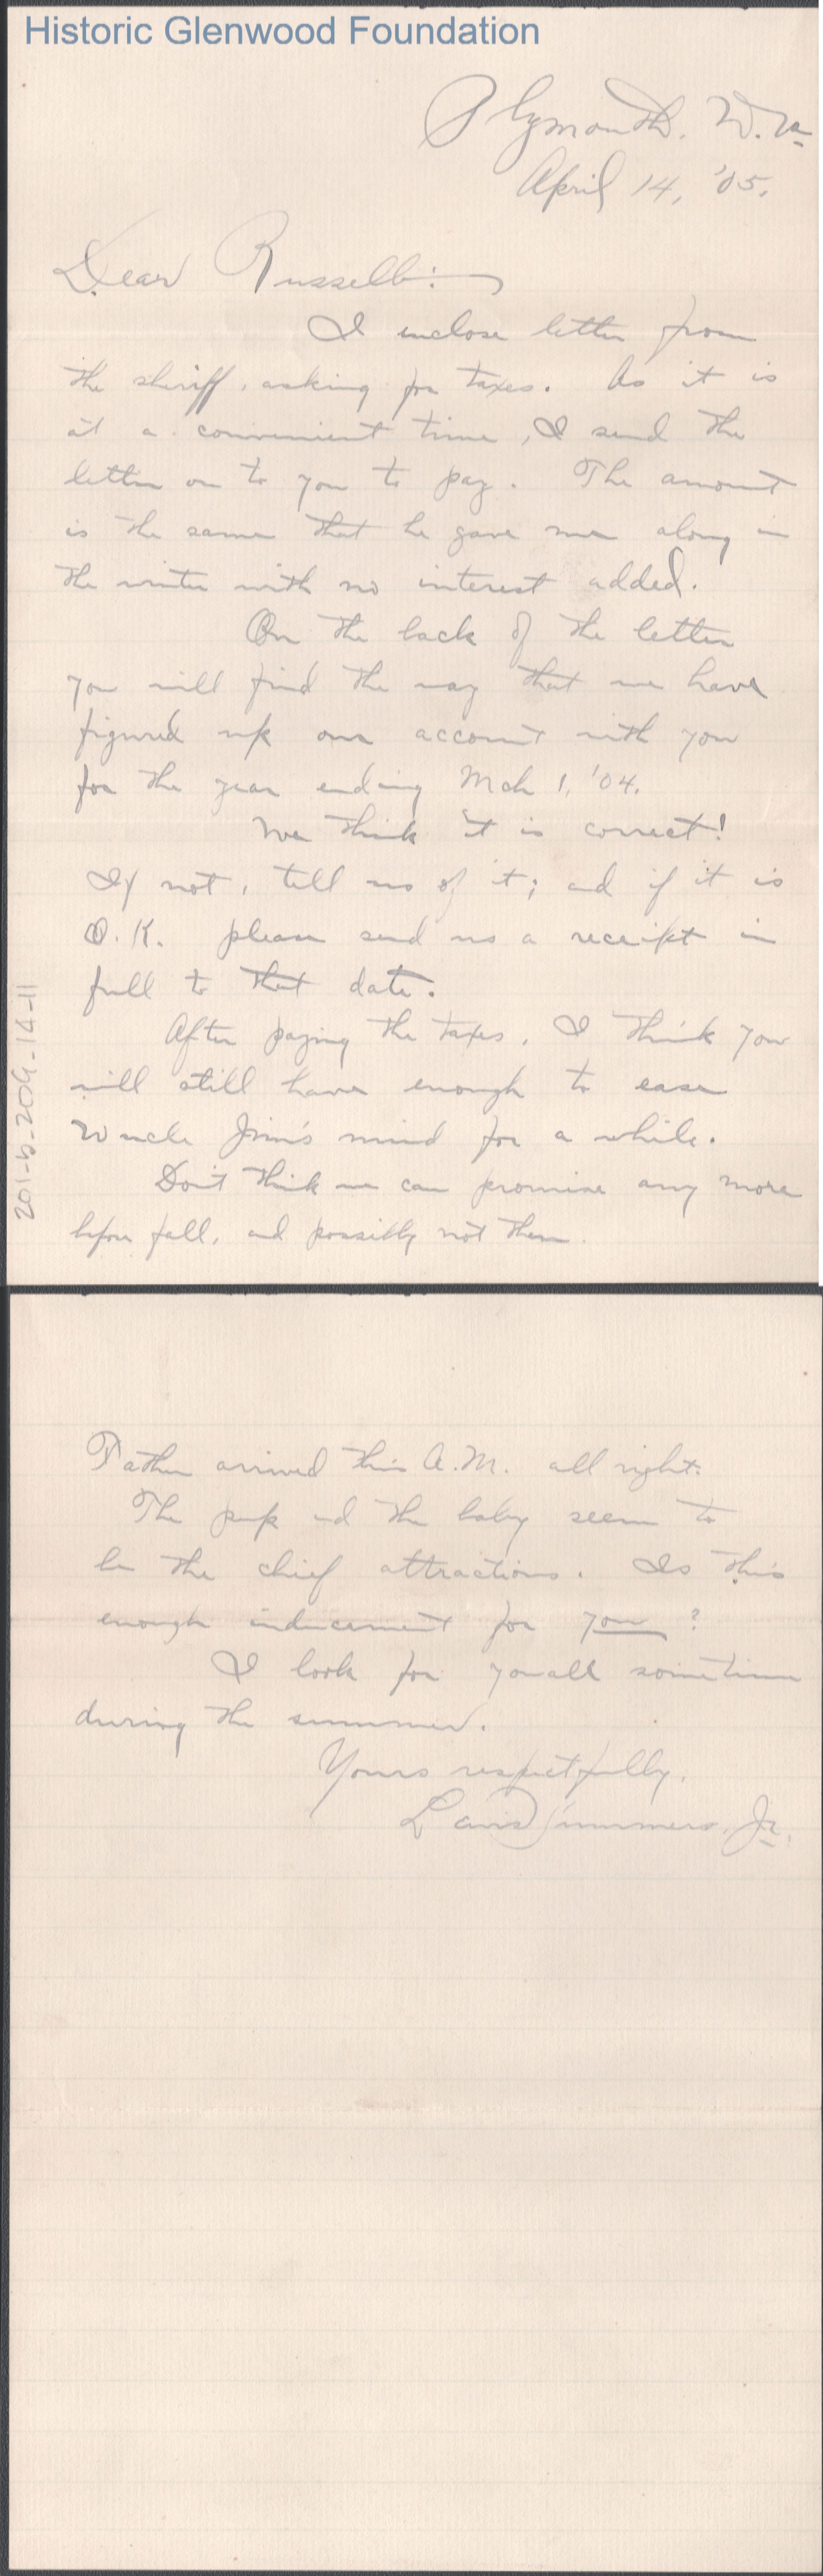 Historic Glenwood Foundation
Plymouth. W. Va
April 14, '05.
Dear Russell:
I inclose letter from
the sheriff, asking for taxes. As it is
at a convenient time, I send the
letter on to you to pay. The amount
is the same that he gave me along in
the winter with no interest added.
On the back of the letter
you will find the way that we have
figured up our account with you
for the year ending Mch 1, '04.
We think it is correct!
If not, tell us of it; and if it is
O.K. please send us a receipt in
full to that date.
After paying the taxes, I think you
will still have enough to ease
Uncle Jim's mind for a while.
Don't think we can promise any more
before fall, and possibly not then.
201-b-209-14-11
Father arrived this A.M. all right.
The pup and the baby seem to
be the chief attractions. Is this
enough inducement for you?
I look for you all sometime
during the summer.
Yours respectfully,
Lewis Summers, Jr.